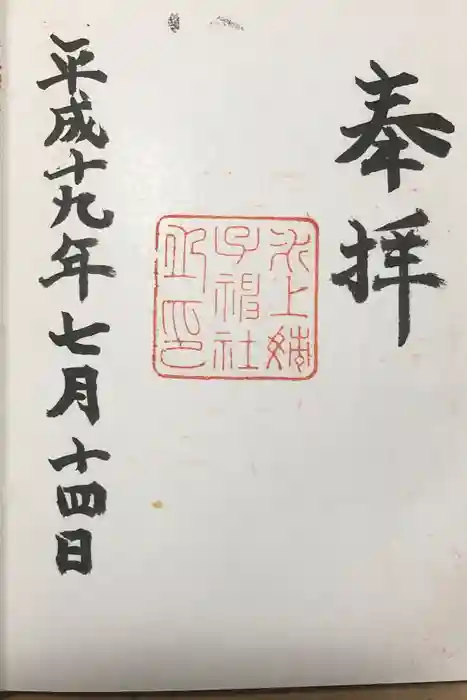 奉拝
氷上姉
子神社
之印
平成十九年七月十四日